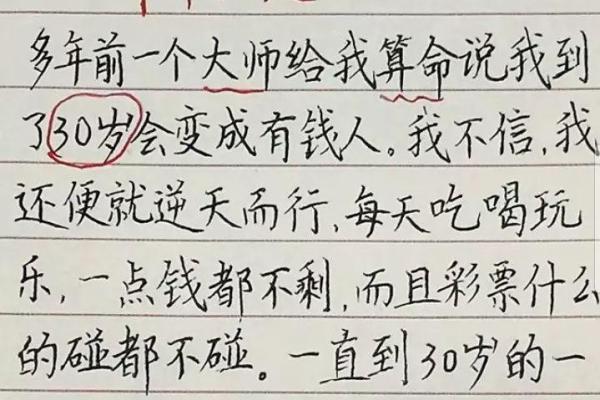 多年前一个大师给我算命说我到
了30岁会变成有钱人。我不信,我
还便就逆天而行,每天吃喝玩
乐,一点钱都不剩,而且彩票什么
的碰都不碰。一直到30岁的一